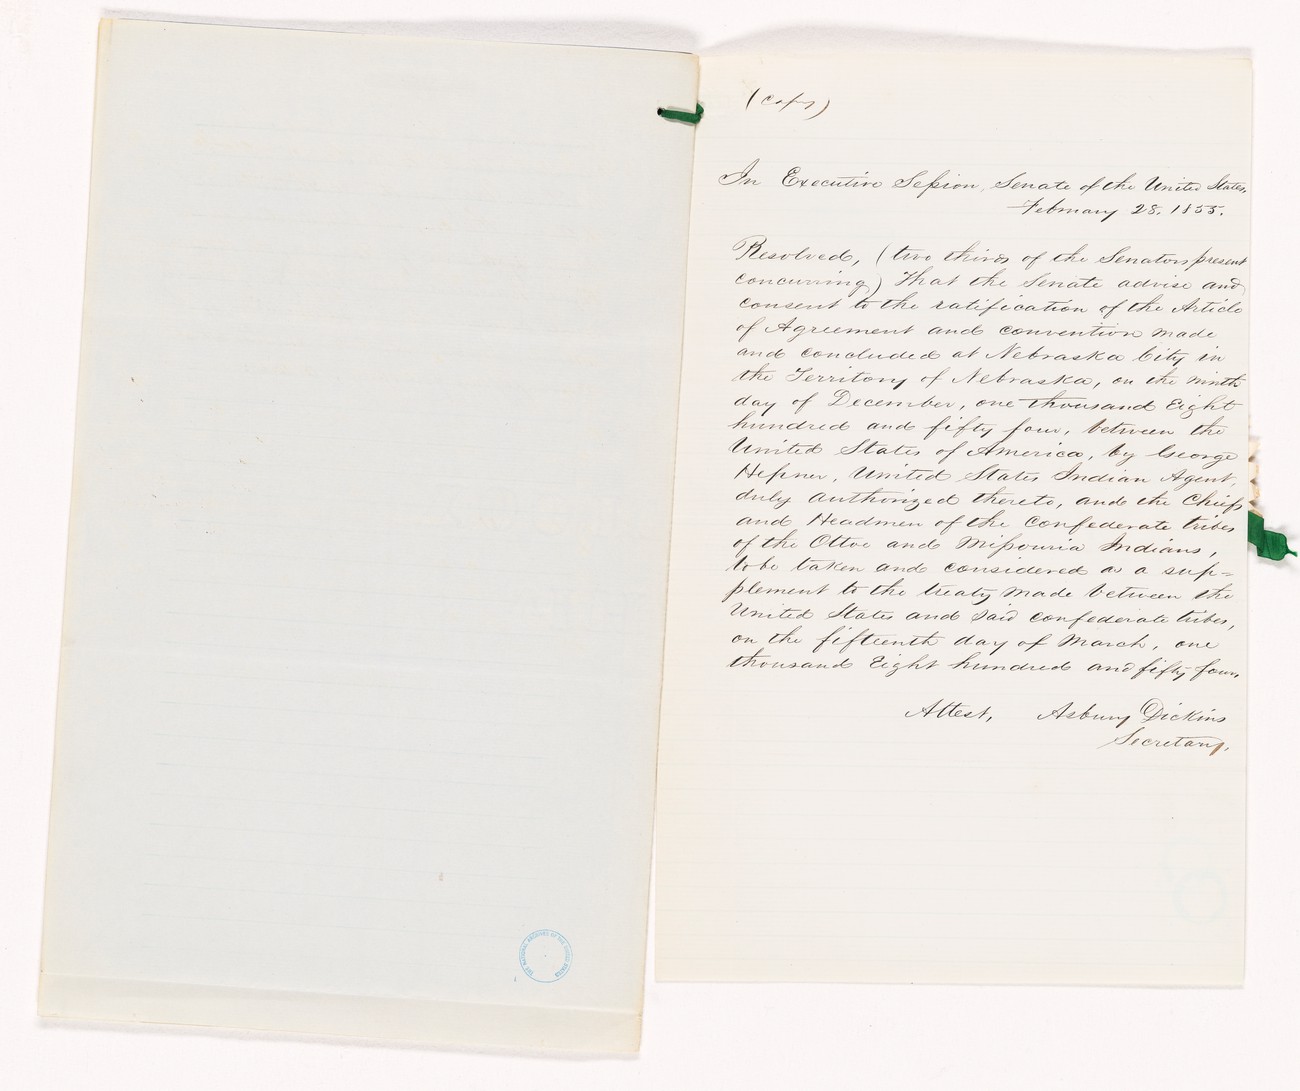 (Copy)
In Executive Session, Senate of the United States,
February 28. 1855.
Resolved, (two thirds of the Senators present
concurring) That the Senate advise and
consent to the ratification of the Article
of Agreement and convention made
and concluded at Nebraska City in
the Territory of Nebraska, on the ninth
day of December, one thousand Eight
hundred and fifty four, between the
United States of America, by George
Hepner, United States Indian Agent,
duly authorized thereto, and the Chiefs
and Headmen of the Confederate tribes
of the Ottoe and Missouria Indians,
to be taken and considered as a sup=
plement to the treaty made between the
United States and said confederate tribes,
on the fifteenth day of March, one
thousand Eight hundred and fifty-four.
Attest, Asbury Dickins
Secretary.
THE NATIONAL ARCHIVES OF THE UNITED STATES